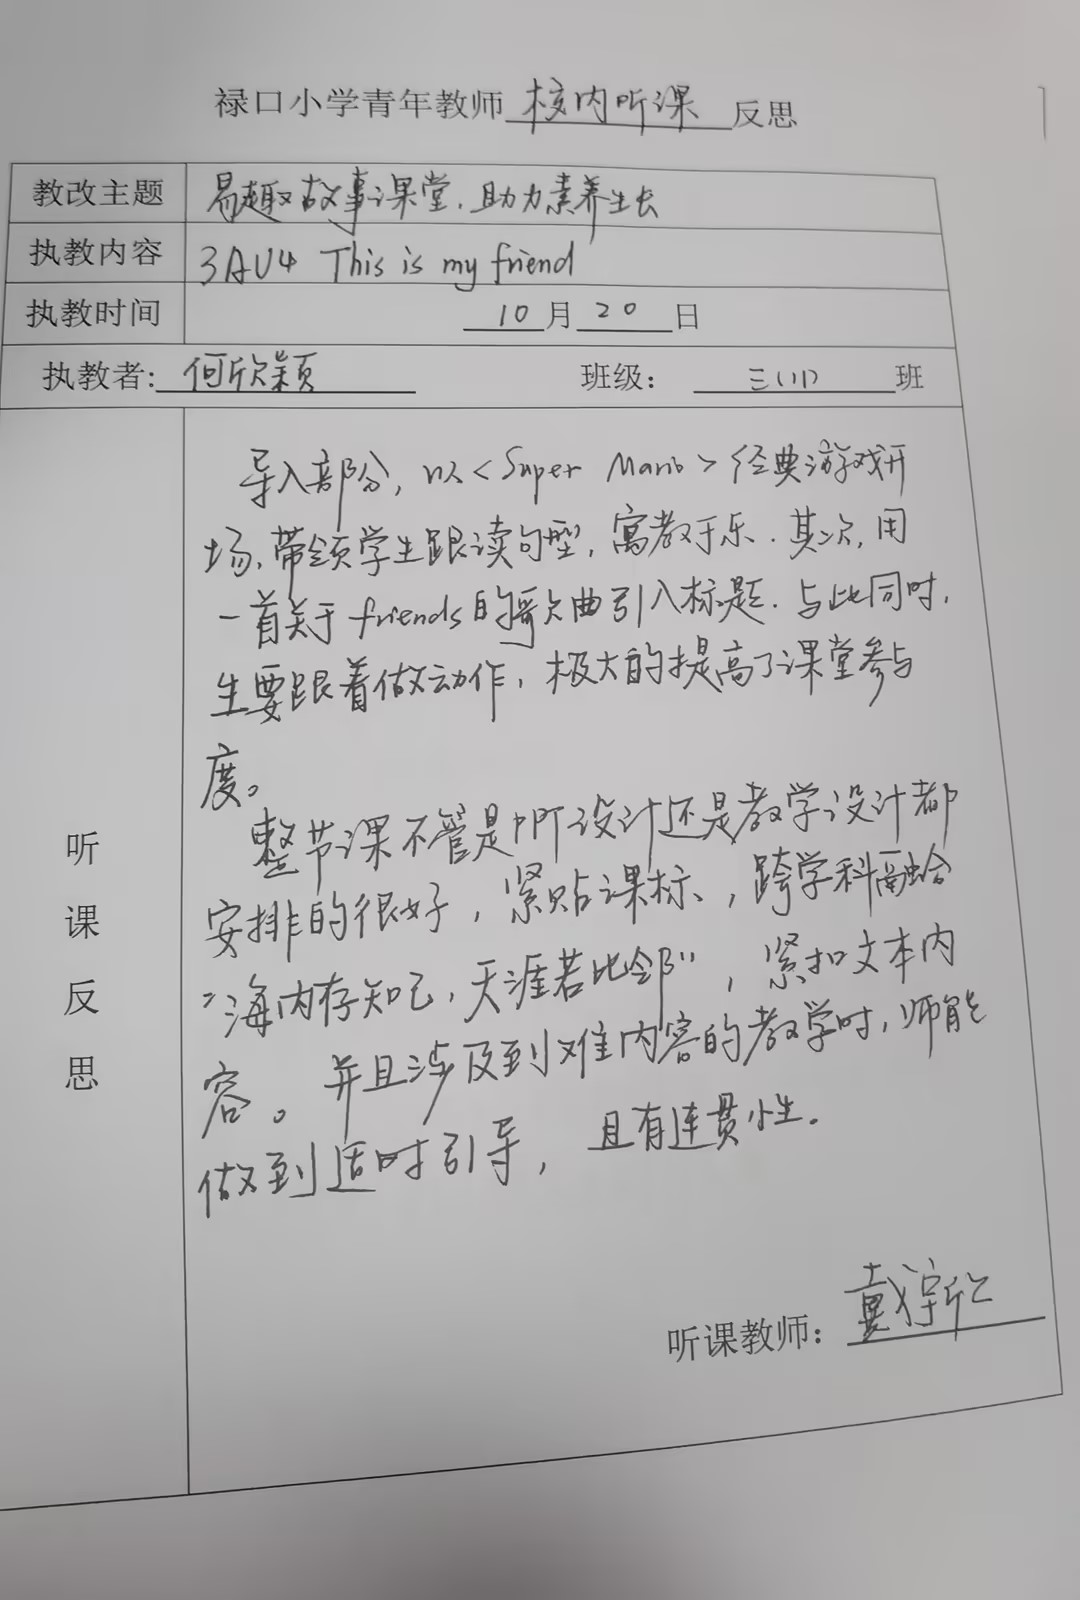 禄口小学青年教师 校内听课 反思
教改主题 易趣故事课堂，助力素养生长
执教内容 3AU4 This is my friend
执教时间 10月20日
执教者：何欣颖 班级：三(11)班
导入部分，以<Super Mario>经典游戏开
场，带领学生跟读句型，寓教于乐．其次，用
一首关于friends的歌曲引入标题．与此同时，
生要跟着做动作，极大的提高了课堂参与
度。
整节课不管是PPT设计还是教学设计都
安排的很好，紧贴课标，跨学科融合
“海内存知己，天涯若比邻”，紧扣文本内
容。并且涉及到难内容的教学时，师能
做到适时引导，且有连贯性。
听课反思
听课教师：戴宇欣